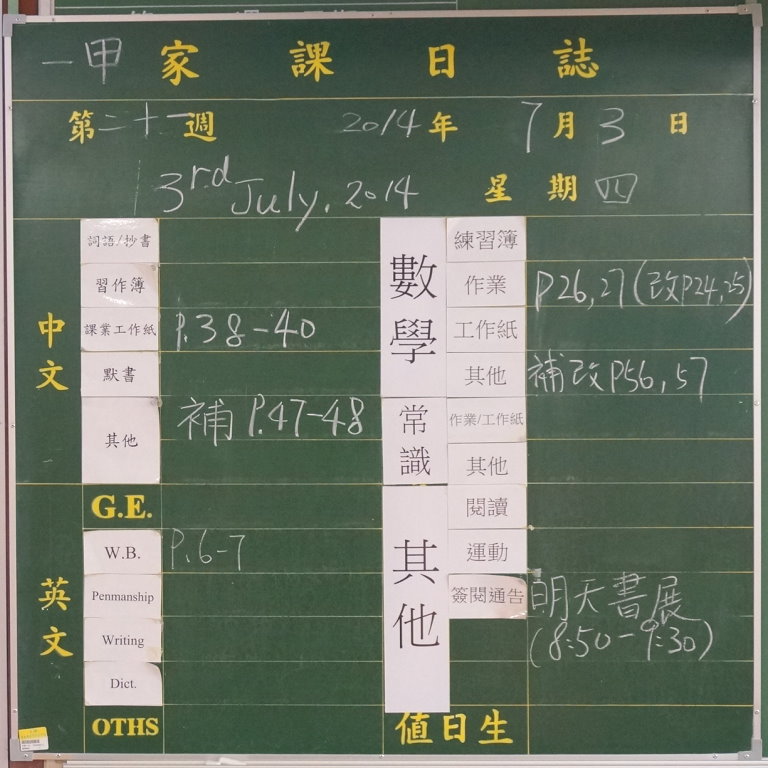 一甲 家課日誌
第二十一週 2014年 7月3日
3rd July, 2014 星期四
中文
詞語/抄書
習作簿
課業工作紙 P.38-40
默書
其他 補 P.47-48
英文
G.E.
W.B. P.6-7
Penmanship
Writing
Dict.
OTHS
數學
練習簿
作業 P26,27(改P24,25)
工作紙
其他 補改P56,57
常識
作業/工作紙
其他
其他
閱讀
運動
簽閱通告 明天書展
(8:50-9:30)
值日生